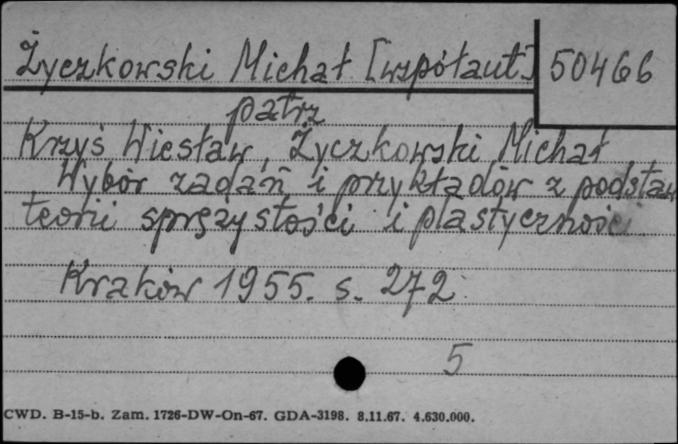 Życzkowski Michał [współaut.] 50466
patrz
Krzyś Wiesław, Życzkowski Michał
Wybór zadań i przykładów z podstaw
teorii sprężystości i plastyczności
Kraków 1955. s. 272
5
CWD. B-15-b. Zam. 1726-DW-On-67. GDA-3198. 8.11.67. 4.630.000.